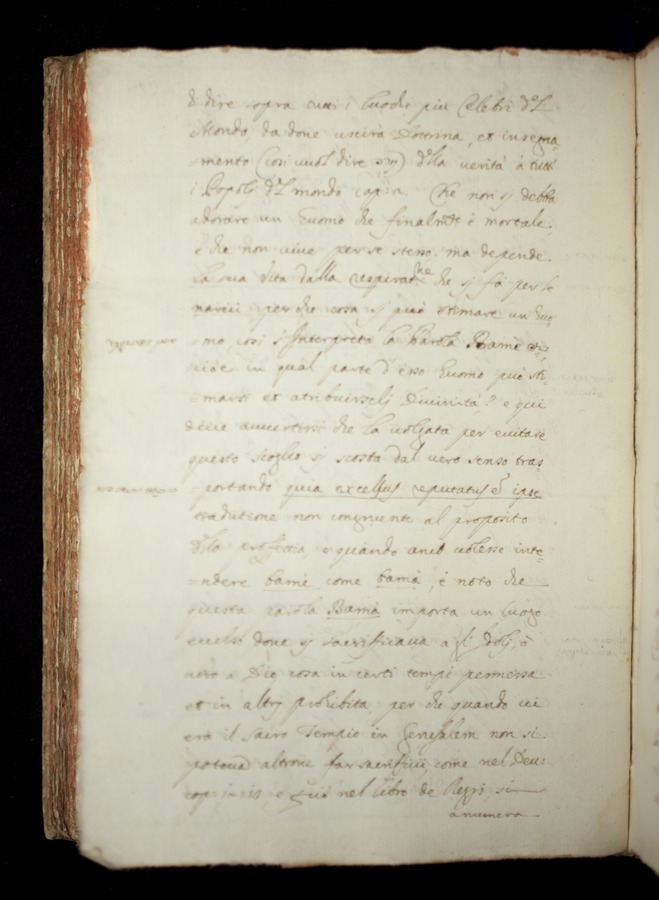 di dire sopra tutti i luoghi più Celebri d'l
Mondo, da done uscirà Dottrina, et insegna
=mento (così vuol dire) d'la verità à tutti
i Popoli d'l mondo cap: Che non si debba
adorare un huomo che finalmte è mortale,
e che non vive per se stesso, ma depende
la sua vita dalla respiratne che si fà per le
narici, per che cosa si può stimare un huo
=mo, così s'Interpreta la Parola Bamè
cioè in qual parte d'esso huomo può sti=
=marsi et atribuirseli Divinità? e qui
deve avvertirsi che la volgata per evitare
questo scoglio si scosta dal vero senso tras=
=portando quia excelsus reputatus e ipse
tradutione non congruente al proposito
d'la profettia, e quando anco volesse inte=
=ndere bamè come bamà, è noto che
questa parola Bamà importa un luogo
excelso done si sacrificava a gl'Idoli, ò
vero a Dio cosa in certi tempi permessa
et in altri prohibita, per che quando vi
era il sacro Tempio in Gerusalem non si
poteva altrove far sacrificii, come nel Deu:
cap: in 12 e quì nel libro de Regi, si
anumera